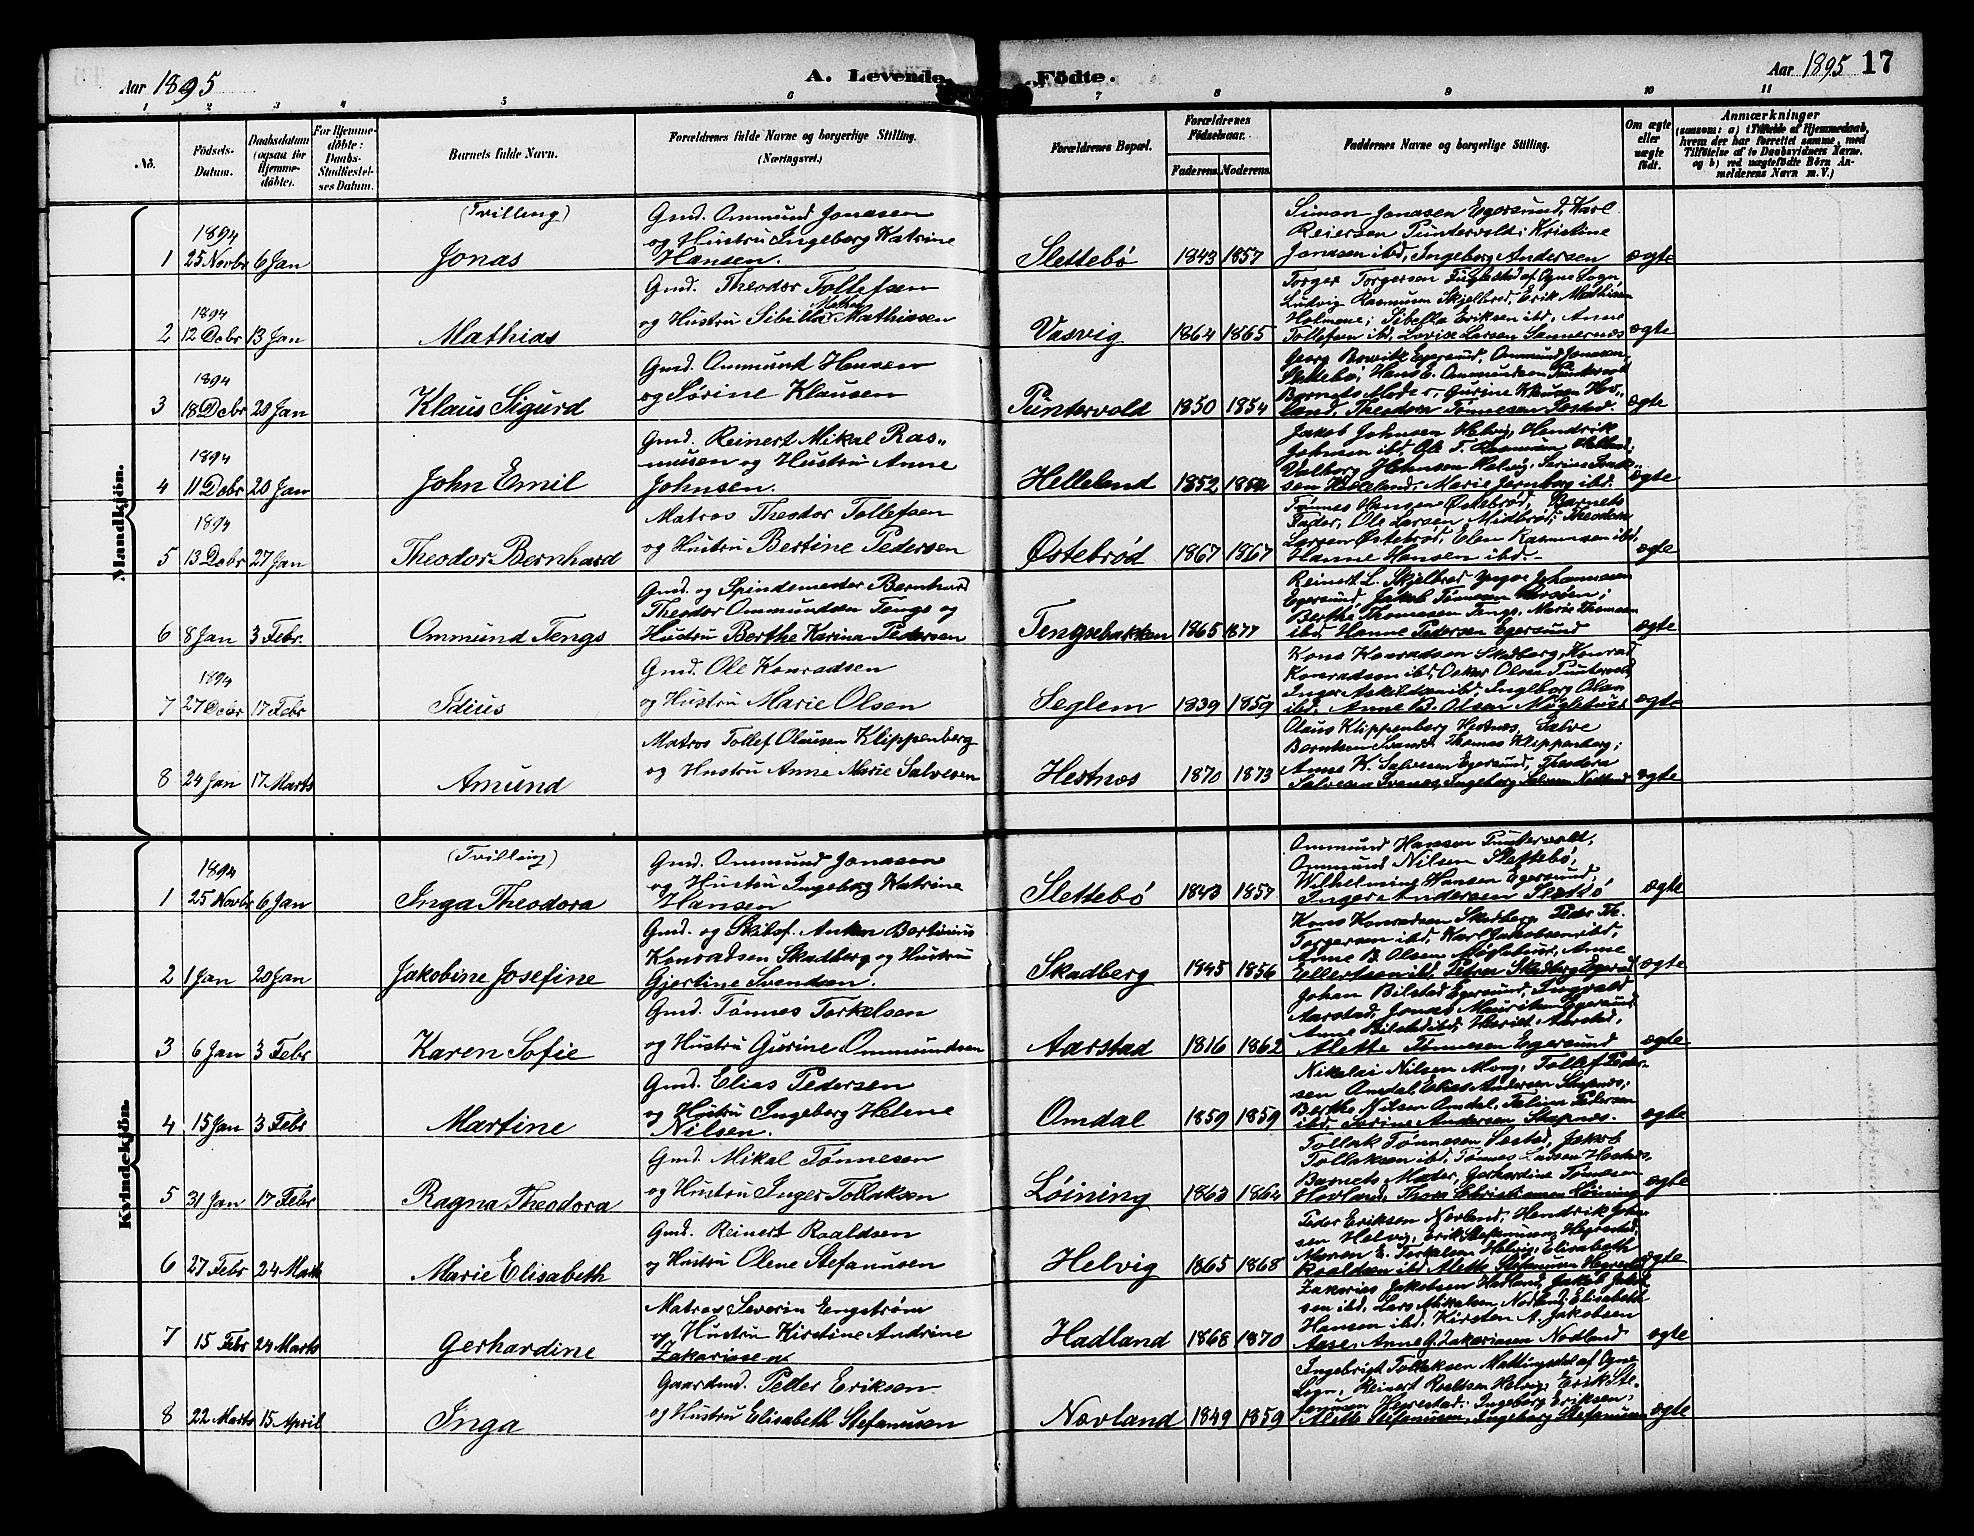 Aar 1895
A. Levende Födte.
Aar 1895 17
1 2 3 4 5 6 7 8 9 10 11
No.
Födsels-Datum.
Daabsdatum (ogsaa for Hjemme-döbte).
For Hjemme-döbte: Daabs-Stadfæstel-ses Datum.
Barnets fulde Navn.
Forældrenes fulde Navne og borgerlige Stilling. (Næringsvei.)
Forældrenes Bopæl.
Forældrenes Födselsaar.
Faderens. Moderens.
Faddernes Navne og borgerlige Stilling.
Om ægte eller uægte födt.
Anmærkninger
(saasom: a) i Tilfælde af Hjemmedaab, hvem der har forrettet samme, med Tilföielse af to Daabsvidners Navne. og b) ved uægtefödte Börn An-melderens Navn m. V.)
Mandkjön.
1 1894 25 Novbr 6 Jan (Tvilling) Jonas
Gmd. Ommund Jonasen
og Hustru Ingeborg Katrine
Hansen.
Slettebö 1843 1857
Simon Jonasen Egersund, Karl
Reiersen Puntervold; Kristine
Jonasen ibd, Ingeborg Andersen
ægte
2 1894 12 Debr 13 Jan Mathias
Gmd. Theodor Tollefsen
og Hustru Sibilla Mathiasen
Vasvig 1864 1865
Torger Torgersen af Ogne Sogn
Ludvig Rasmusen Skjelbred, Erik Mathiasen
Holmene; Sibella Eriksen ibd, Anne
Tollefsen ibd, Lovise Larsen
ægte
3 1894 18 Debr 20 Jan Klaus Sigurd
Gmd. Ommund Hansen
og Sørine Klausen
Puntervold 1850 1854
Georg Egersund, Ommund Jonasen,
Slettebö, Hans E. Ommundsen Puntervold
Barnets Moder, Gurine Klausen Hov-
land, Theodora Tønnesen Sestad.
ægte
4 1894 11 Debr 20 Jan John Emil
Gmd. Reinert Mikal Ras-
musen og Hustru Anne
Johnsen.
Helleland 1852 1852
Jakob Johnsen Helvig, Hendrik
Johnsen ibd, Ole T.
Valborg Johnsen Helvig,
sen Helleland, Marie Jernberg ibd.
ægte
5 1894 13 Debr 27 Jan Theodor Bernhard
Matros Theodor Tollefsen
og Hustru Bertine Pedersen
Østebrød 1867 1867
Tønnes Hansen Østebrød, Barnets
Fader, Ole Larsen Midbrød, Theodora
Larsen Østebrød, Elen Rasmusen ibd,
Hanne Hansen ibd.
ægte
6 8 Jan 3 Febr. Ommund Tengs
Gmd. og Spindemester Bernhard
Theodor Ommundsen Tengs og
Hustru Berthe Karina Pedersen
Tengsebakken 1865 1877
Reinert L. Skjelbred, Yngve Johannesen
Egersund, Jakob Tønnesen
Berthe Thomasen Tengs, Marie Thomasen
ibd, Hanne Pedersen Egersund
ægte
7 1894 27 Debr 17 Febr Idius
Gmd. Ole Konradsen
og Hustru Marie Olsen
Seglem 1839 1859
Kons Konradsen Skadberg, Konrad
Konradsen ibd, Oskar Olsen Puntervold,
Inger Askildsen ibd, Ingeborg Olsen
ibd, Anne B. Olsen Møglehus.
ægte
8 24 Jan 17 Marts Amund
Matros Tollef Olausen Klippenberg
og Hustru Anne Marie Salvesen
Hestnes 1870 1873
Olaus Klippenberg Hestnes, Salve
Berntsen Svanes, Thomas Klippenberg;
Anne K. Salvesen Egersund, Theodora
Salvesen Svanes, Ingeborg Salvesen Nodland
ægte
Kvindekjön.
1 1894 25 Novbr 6 Jan (Tvilling) Inga Theodora
Gmd. Ommund Jonasen
og Hustru Ingeborg Katrine
Hansen
Slettebö 1843 1857
Ommund Hansen Puntervold,
Ommund Nilsen Slettebö,
Wilhelmine Hansen Egersund,
Inger Andersen Slettebö
ægte
2 1 Jan 20 Jan Jakobine Josefine
Gmd. og Skibsf. Anton Bertinius
Konradsen Skadberg og Hustru
Gjertine Svendsen.
Skadberg 1845 1856
Kons Konradsen Skadberg, Peder Th.
Torgersen ibd, Karl Jakobsen ibd,
Anne B. Olsen Møglehus, Anne
Ellertsen ibd, Petra Skadberg Egersund
ægte
3 6 Jan 3 Febr Karen Sofie
Gmd. Tønnes Torkelsen
og Hustru Gurine Ommundsen
Aarstad 1816 1862
Johan Bilstad Egersund, Ingvald
Aarstad, Jonas Mauritsen Egersund
Anne Bilstad ibd, Hariet Aarstad,
Alette Tønnesen Egersund
ægte
4 15 Jan 3 Febr Martine
Gmd. Elias Pedersen
og Hustru Ingeborg Helene
Nilsen.
Omdal 1859 1859
Nikolai Nilsen Mong, Tollef Peder-
sen Omdal, Elias Andersen Stapnes;
Berthe Nilsen Omdal, Talina Pedersen
ibd, Serine Andersen Stapnes.
ægte
5 31 Jan 17 Febr Ragna Theodora
Gmd. Mikal Tønnesen
og Hustru Inger Tollaksen
Løining 1863 1864
Tollak Tønnesen Sestad, Jakob
Tollaksen ibd, Tønnes Larsen Hestnes,
Barnets Moder, Gerhardine Tønnesen
Hovland, Thora Christiansen Løining
ægte
6 27 Febr 24 Marts Marie Elisabeth
Gmd. Reinert Roaldsen
og Hustru Olene Stefanusen
Helvig 1865 1868
Peder Eriksen Nevland, Hendrik John-
sen Helvig, Erik Stefanusen Hegrestad
Maren E. Terkelsen Helvig, Elisabeth
Roaldsen ibd, Alette Stefanusen Hegrestad
ægte
7 15 Febr 24 Marts Gerhardine
Matros Severin Engstrøm
og Hustru Kirstine Andrine
Zakariasen
Hadland 1868 1870
Zakarias Jakobsen Hadland, Jakob Jakob-
sen ibd, Lars Mikalsen Nodland, Elisabeth
Hansen ibd, Kirsten A. Jakobsen
Aase, Anne G. Zakariasen Nodland
ægte
8 22 Marts 15 April Inga
Gaardmd. Peder Eriksen
og Hustru Elisabeth Stefanusen
Nevland 1849 1859
Ingebrigt Tollaksen Mattingsdal af Ogne
Sogn, Reinert Roaldsen Helvig, Erik Ste-
fanusen Hegrestad. Ingeborg Eriksen,
Alette Stefanusen, Ingeborg Stefanusen
ægte